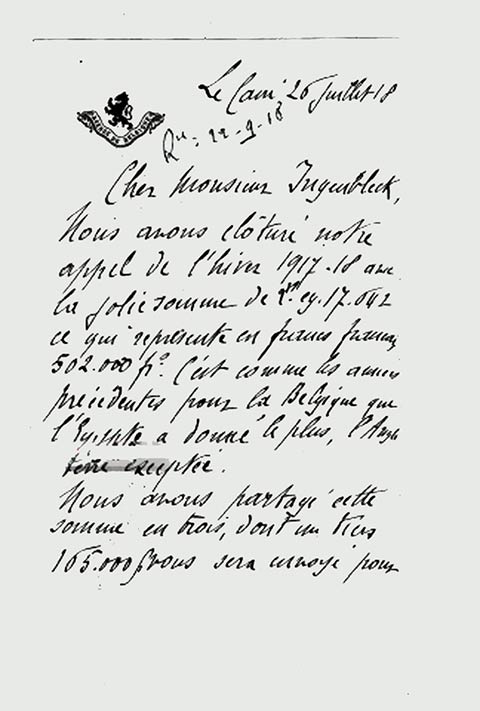 Le Caire 26 Juillet 18
AGENCE DE BELGIQUE
Rn: 22-9-18
Cher Monsieur Ingenbleek,
Nous avons clôturé notre
appel de l'hiver 1917-18 avec
la jolie somme de eg. 17.642
ce qui représente en francs français
502.000 frs. C'est comme les années
précédentes pour la Belgique que
l'Egypte a donné le plus, l'Angle
terre exceptée.
Nous avons partagé cette
somme en trois, dont un tiers
165.000 frs vous sera envoyé pour